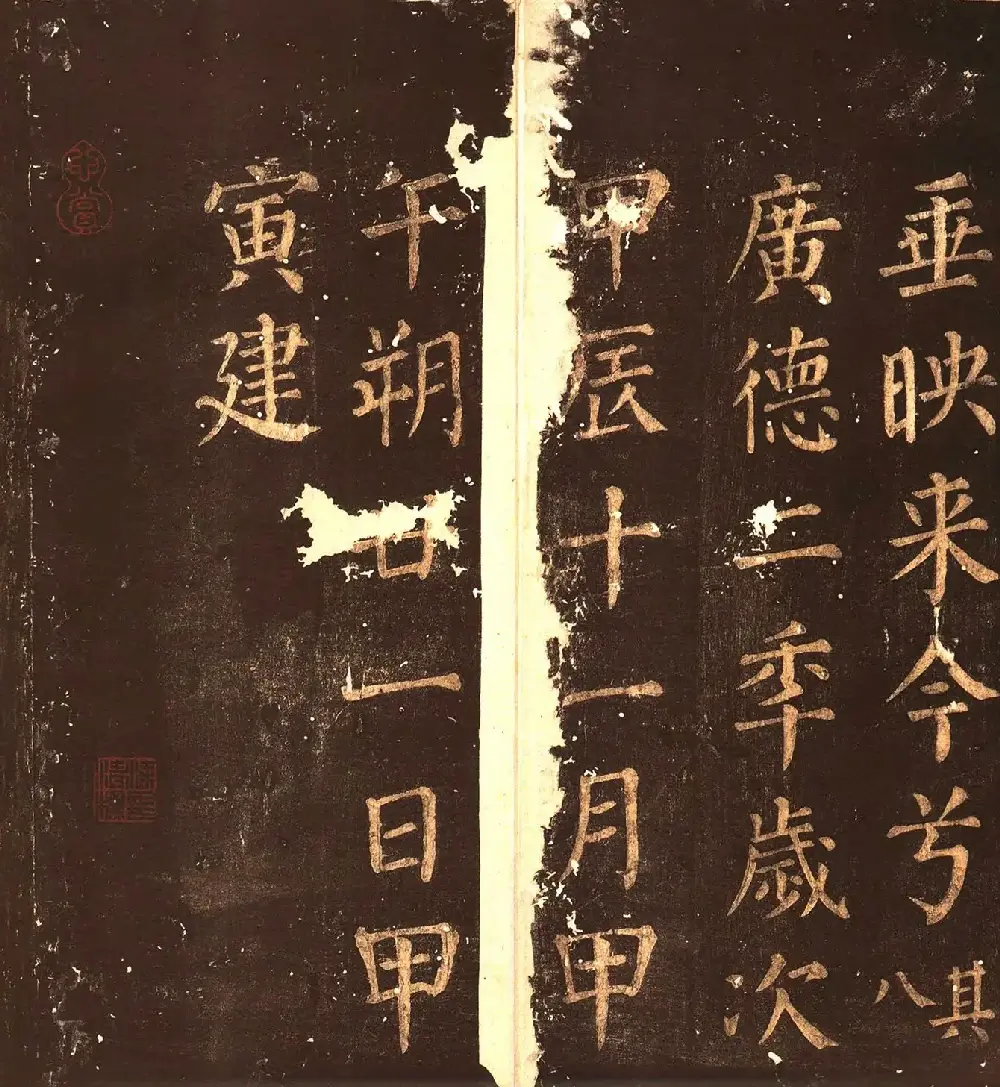 垂映来今兮其八
廣德二季歲次
甲辰十一月甲
午朔廿一日甲
寅建